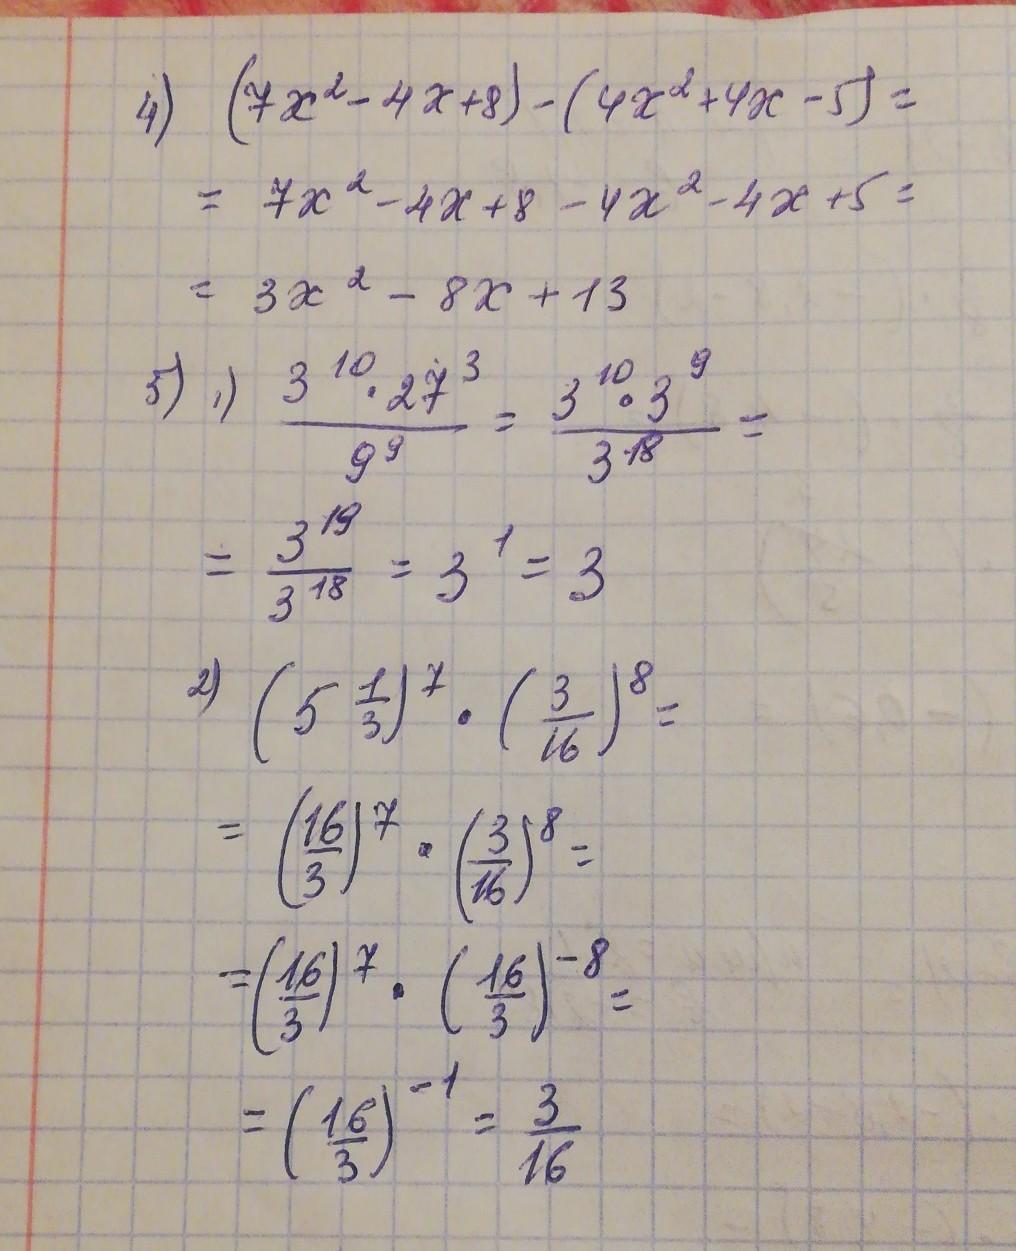 4) (7x² - 4x + 8) - (4x² + 4x - 5) =
= 7x² - 4x + 8 - 4x² - 4x + 5 =
= 3x² - 8x + 13
5) 1) (3¹⁰ · 27³)/9⁹ = (3¹⁰ · 3⁹)/3¹⁸ =
= 3¹⁹/3¹⁸ = 3¹ = 3
2) (5 1/3)⁷ · (3/16)⁸ =
= (16/3)⁷ · (3/16)⁸ =
= (16/3)⁷ · (16/3)⁻⁸ =
= (16/3)⁻¹ = 3/16